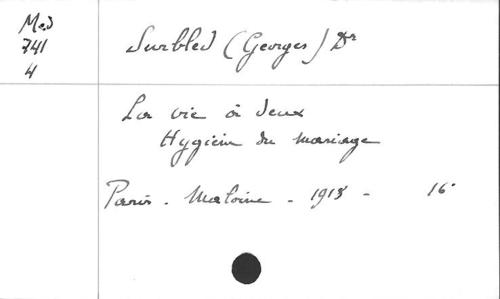 Med
741
4
Surbled (Georges) Dr
La vie à deux
Hygiène du mariage
Paris - Maloine - 1913 - 16°